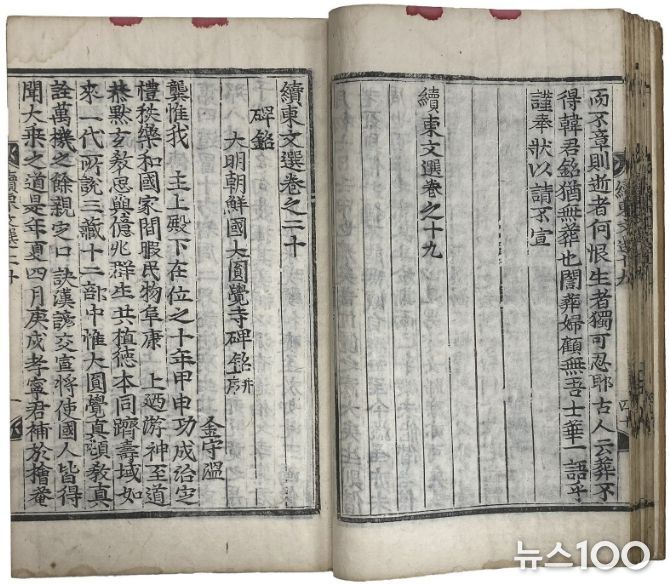 續東文選十九
而不章則逝者何恨生者獨可忍耶古人云葬不
得韓君銘猶無葬也誾葬婦顧無吾士華一語乎
謹奉狀以請不宣
續東文選卷之十九
續東文選卷之二十
碑銘
大明朝鮮國大圓覺寺碑銘 并序
金守溫
龔惟我 主上殿下在位之十年甲申功成治定
禮秩樂和國家閒暇民物阜康 上迺游神至道
恭默玄教思與億兆群生共植德本同躋壽域如
來一代所說三藏十二部中惟大圓覺真頓教真
詮萬機之餘親定口訣漢諺交宣將使國人皆得
聞大乘之道是年夏四月庚戌孝寧君補於檜菴
뉴스100